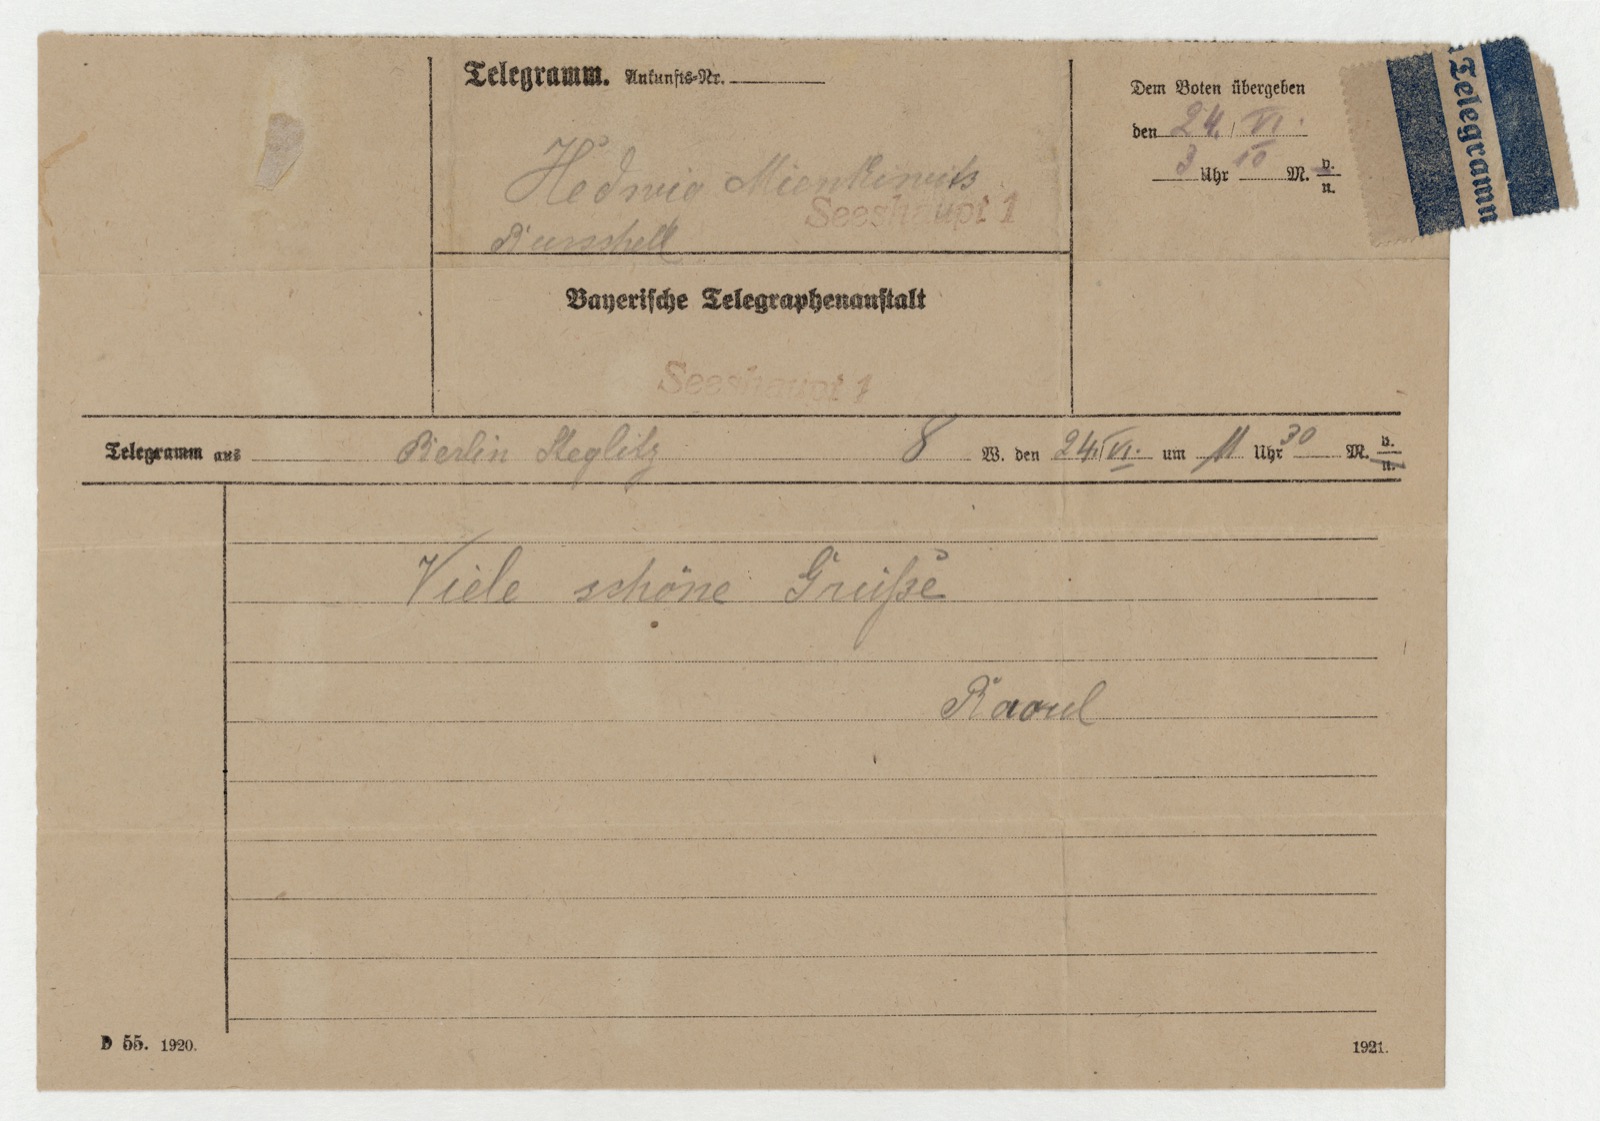 Telegramm. Ankunfts-Nr.
Hedwig
Seeshaupt 1
Bayerische Telegraphenanstalt
Seeshaupt 1
Dem Boten übergeben
den 24. VI.
3 Uhr 10 M. v./n.
Telegramm
Telegramm aus Berlin Steglitz 8 W. den 24. VI. um 11 Uhr 30 M. v./n.
Viele schöne Grüße
Raoul
D 55. 1920.
1921.